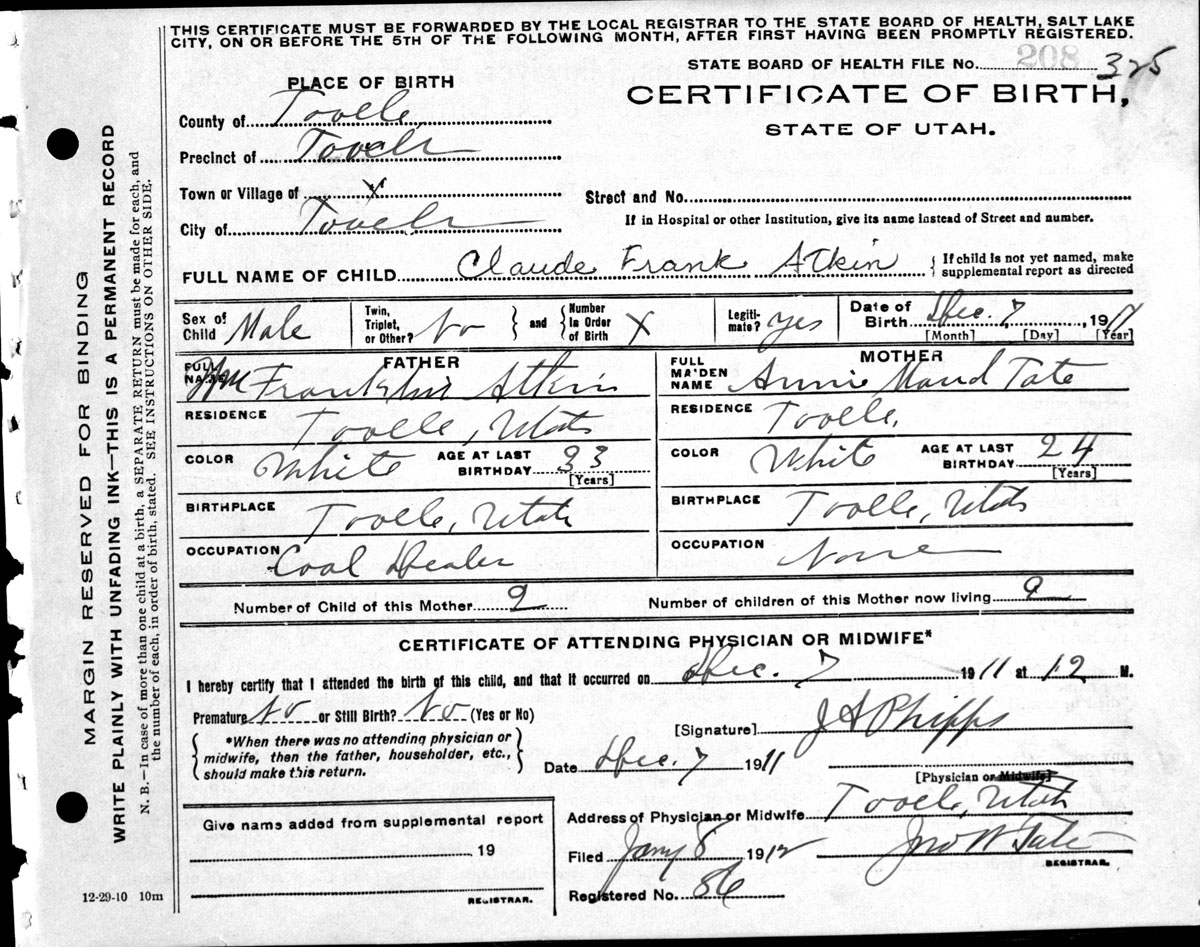 THIS CERTIFICATE MUST BE FORWARDED BY THE LOCAL REGISTRAR TO THE STATE BOARD OF HEALTH, SALT LAKE
CITY, ON OR BEFORE THE 5TH OF THE FOLLOWING MONTH, AFTER FIRST HAVING BEEN PROMPTLY REGISTERED.
STATE BOARD OF HEALTH FILE No. 208 325
PLACE OF BIRTH
CERTIFICATE OF BIRTH,
STATE OF UTAH.
County of Tooele
Precinct of Tooele
Town or Village of X
Street and No.
City of Tooele
If in Hospital or other Institution, give its name instead of Street and number.
FULL NAME OF CHILD Claude Frank Atkin { If child is not yet named, make
supplemental report as directed
Sex of Child Male
Twin, Triplet, or Other? No } and { Number in Order of Birth X
Legiti-mate? Yes
Date of Birth Dec. 7, 1911
[Month] [Day] [Year]
FATHER
FULL NAME Wm Franklin Atkin
RESIDENCE Tooele, Utah
COLOR White AGE AT LAST BIRTHDAY 33
[Years]
BIRTHPLACE Tooele, Utah
OCCUPATION Coal Dealer
MOTHER
FULL MAIDEN NAME Annie Maud Tate
RESIDENCE Tooele,
COLOR White AGE AT LAST BIRTHDAY 24
[Years]
BIRTHPLACE Tooele, Utah
OCCUPATION None
Number of Child of this Mother 2 Number of children of this Mother now living 2
CERTIFICATE OF ATTENDING PHYSICIAN OR MIDWIFE*
I hereby certify that I attended the birth of this child, and that it occurred on Dec. 7 1911 at 12 M.
Premature No or Still Birth? No (Yes or No)
[Signature] J A Phipps
{ *When there was no attending physician or
midwife, then the father, householder, etc.,
should make this return. }
Date Dec. 7 1911
[Physician or Midwife]
Address of Physician or Midwife Tooele, Utah
Give name added from supplemental report
19
REGISTRAR.
Filed Jany 8 1912 Jno W Tate
REGISTRAR.
Registered No. 86
12-29-10 10m
MARGIN RESERVED FOR BINDING
WRITE PLAINLY WITH UNFADING INK—THIS IS A PERMANENT RECORD
N. B.—In case of more than one child at a birth, a SEPARATE RETURN must be made for each, and
the number of each, in order of birth, stated. SEE INSTRUCTIONS ON OTHER SIDE.